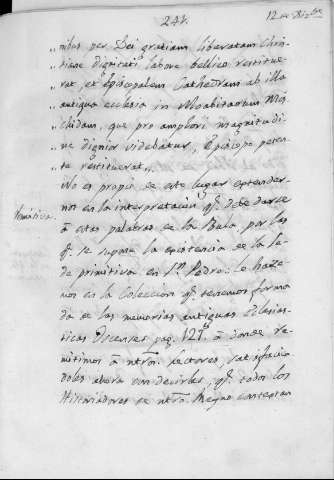 244.
12 de Dizbre
„ nibus per Dei gratiam liberatam Chris-
„ tianæ dignitati labore bellico restitue-
„ rat, et Episcopalem Cathedram ab illa
„ antiqua ecclesia in Moabitarum Mes-
„ chidam, que pro ampliori magnitudi-
„ ne dignior videbatur, Episcopo peten-
„ te restituerat„
No es propio de este lugar estender-
nos en la interpretacion qe. debe darse
à estas palabras de la Bula, por las
qe. se supone la existencia de la Se-
de primitiva en Sn. Pedro: lo haze-
mos en la Coleccion qe. tenemos forma-
da de las memorias antiguas eclesias-
ticas Oscenses pag. 121 à donde re-
mitimos à ntros. Lectores, satisfacien-
doles ahora con decirles, qe. todos los
Historiadores de ntro. Reyno contextan